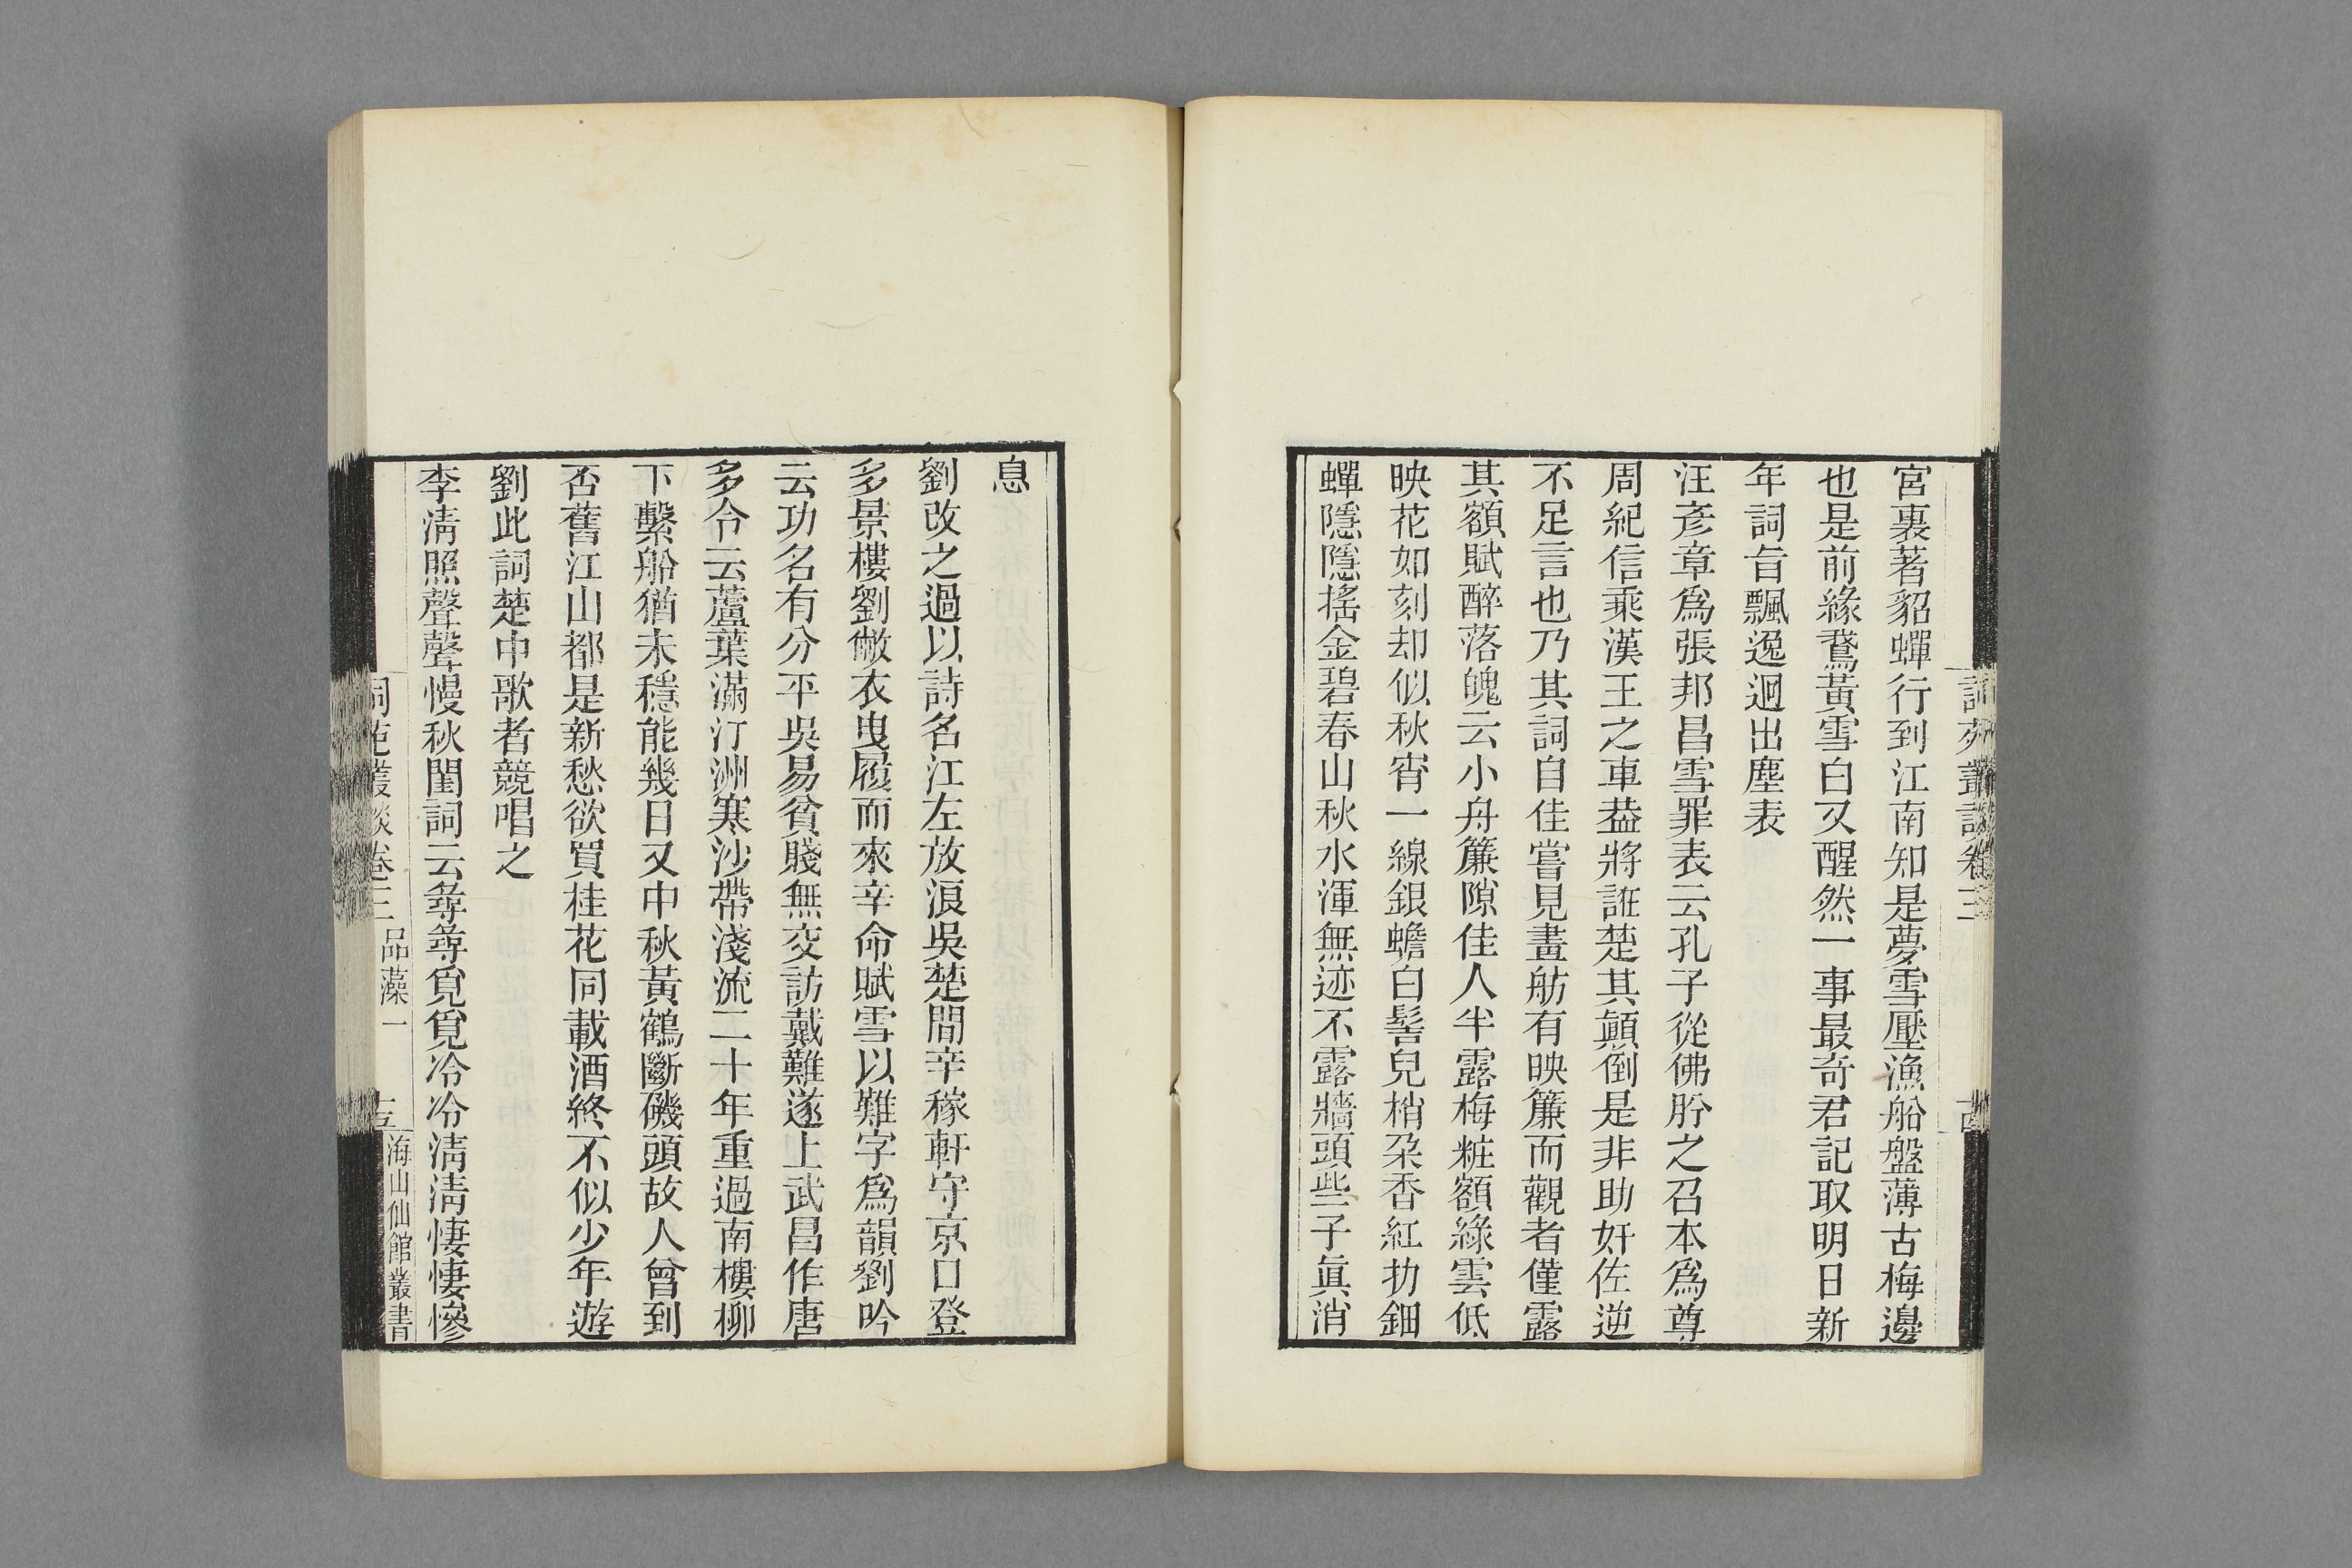 宮裏著貂蟬行到江南知是夢雪壓漁船盤薄古梅邊
也是前緣鵞黃雪白又醒然一事最奇君記取明日新
年詞旨飄逸迥出塵表
汪彥章爲張邦昌雪罪表云孔子從佛肸之召本爲尊
周紀信乘漢王之車葢將誑楚其顚倒是非助奸佐逆
不足言也乃其詞自佳嘗見畫舫有映簾而觀者僅露
其額賦醉落魄云小舟簾隙佳人半露梅粧額綠雲低
映花如刻却似秋宵一線銀蟾白髻兒梢朶香紅扐鈿
蟬隱隱搖金碧春山秋水渾無迹不露牆頭些子眞消
詞苑叢談卷三
息
劉改之過以詩名江左放浪吳楚間辛稼軒守京口登
多景樓劉敝衣曳履而來辛命賦雪以難字爲韻劉吟
云功名有分平吳易貧賤無交訪戴難遂上武昌作唐
多令云蘆葉滿汀洲寒沙帶淺流二十年重過南樓柳
下繫船猶未穩能幾日又中秋黃鶴斷磯頭故人曾到
否舊江山都是新愁欲買桂花同載酒終不似少年遊
劉此詞楚中歌者競唱之
李淸照聲聲慢秋閨詞云尋尋覓覓冷冷淸淸悽悽慘
詞苑叢談卷三 品藻一 海山仙館叢書